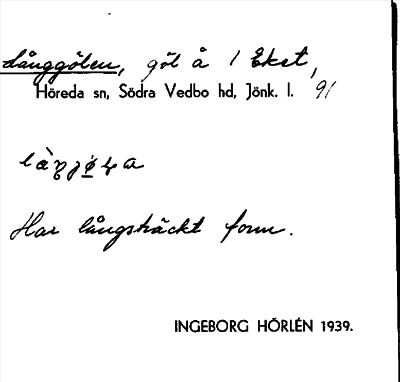 Långgölen, göl å 1 Eket,
Höreda sn, Södra Vedbo hd, Jönk. l. 91
Har långsträckt form.
INGEBORG HÖRLÉN 1939.